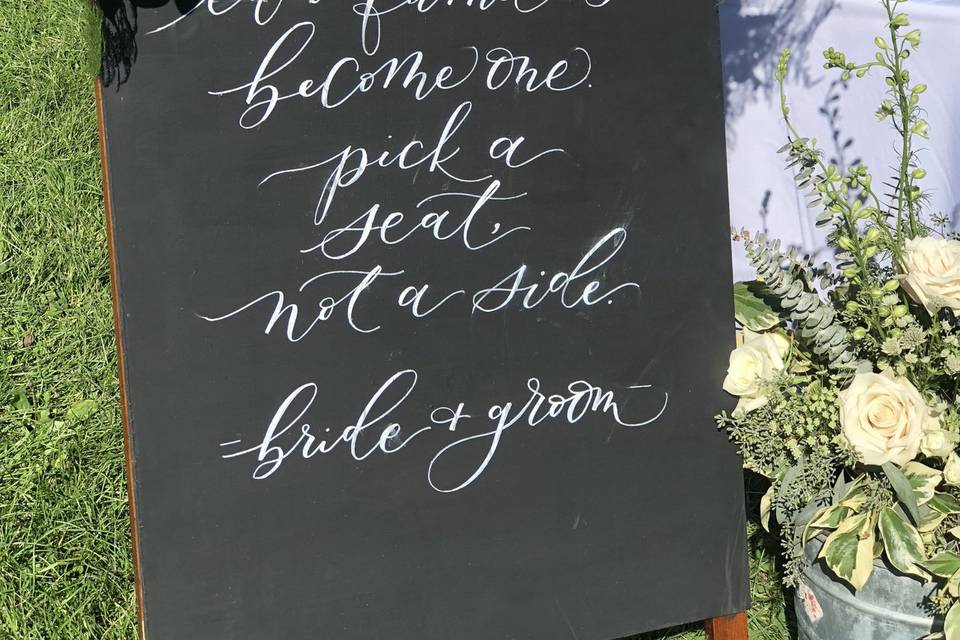 become one.
pick a
seat,
not a side.
- bride + groom -